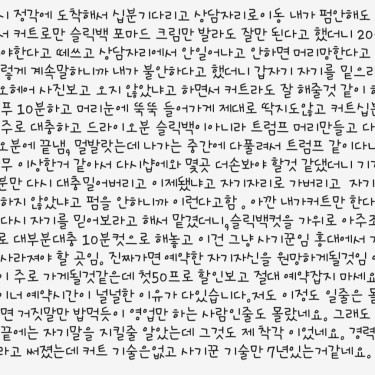 시 정각에 도착해서 십분기다리고 상담자리로이동 내가 펌안해도
서 커트로만 슬릭백 포마드 크림만 발라도 잘만 된다고 했더니 20
야한다고 떼쓰고 상담자리에서 안일어나고 안하면 머리망한다고
렇게 계속말하니까 내가 불안하다고 했더니 갑자기 자기를 믿으라
오헤어 사진보고 오지 않았냐고 하면서 커트라도 잘 해줄것 같이 하
푸 10분하고 머리눈에 뚝뚝 들어가게 제대로 딱지도않고 커트십분
주로 대충하고 드라이오분 슬릭백이아니라 트럼프 머리만들고 다
오분에 끝냄, 덜말랐는데 나가는 중간에 다풀려서 트럼프 같이다니
무 이상한거 같아서 다시샵에와 몇곳 더손봐야 할것 같댔더니 기
분만 다시 대충밀어버리고 이제됐냐고 자기자리로 가버리고 자기
하지 않았냐고 펌을 안하니까 이런다고함 . 아깐 내가커트만 한다
다시 자기를 믿어보라고 해서 맡겼더니,슬릭백컷을 가위로 아주조
로 대부분대충 10분컷으로 해놓고 이건 그냥 사기꾼임 홍대에서
사라져야 할 곳임. 진짜가면 예약한 자기자신을 원망하게될것임
이 주로 가게될것같은데 첫50프로 할인보고 절대 예약잡지 마세요
이너 예약시간이 널널한 이유가 다있습니다.저도 이정도 일줄은 몰
면 거짓말만 밥먹듯이 영업만 하는 사람인줄도 몰랐네요. 그래도
끝에는 자기말을 지킬줄 알았는데 그것도 제 착각 이었네요. 경력
라고 써졌는데 커트 기술은없고 사기꾼 기술만 7년있는거같네요.